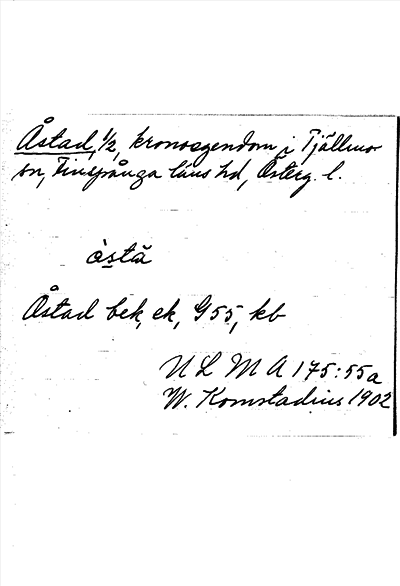 Åstad, 1/2, kronoegendom i Tjällmo
sn, Finspånga läns hd, Österg. l.
òstă
Åstad bek, ek, G55, kb
ULMA 175:55a
W. Komstadius 1902